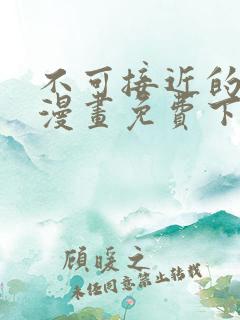 不可接近的
漫畫免費下
顧暖之
未经同意禁止转载